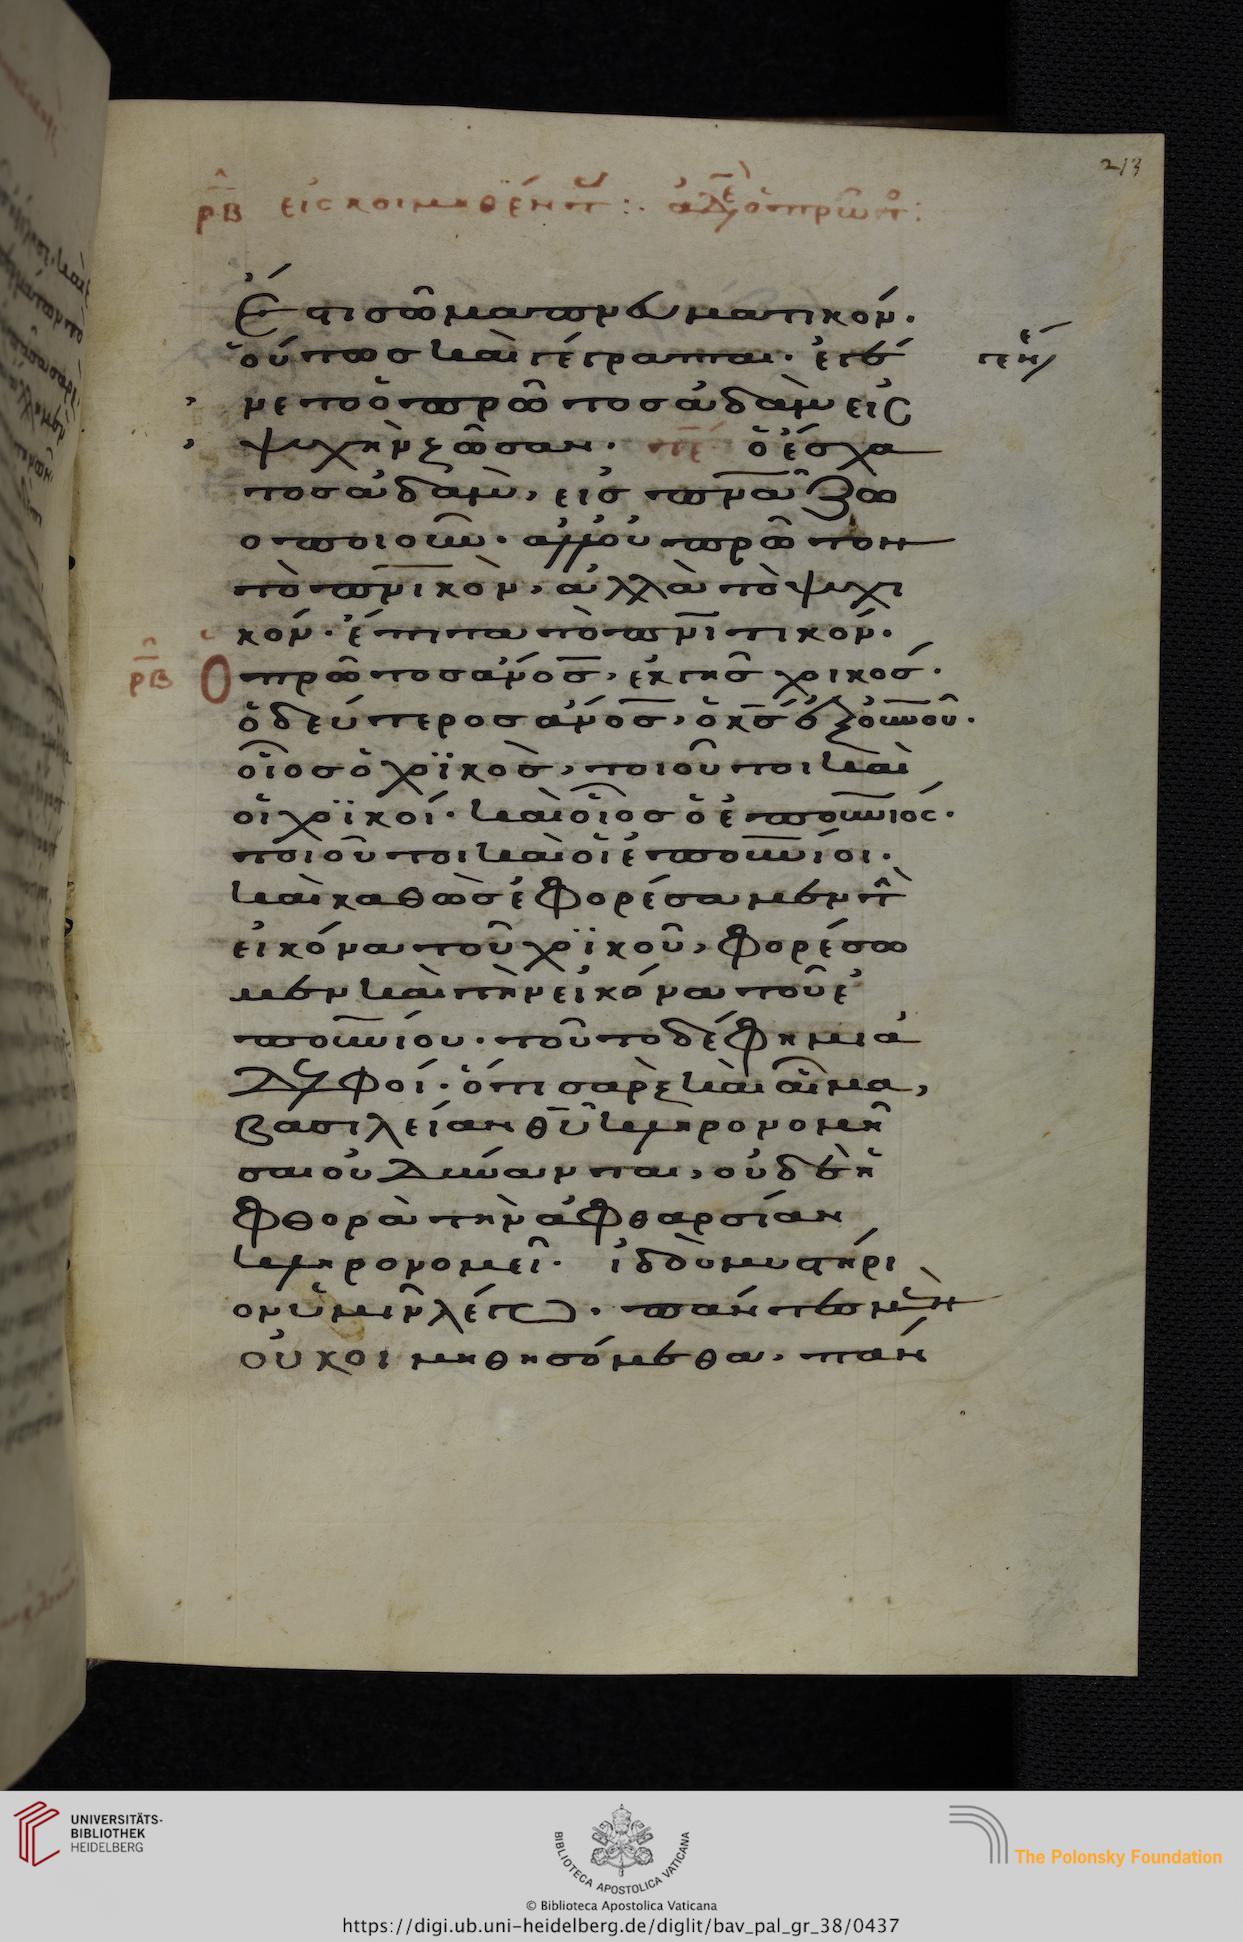 213
ρβ εἰς κοιμηθέντ : ἀδε ὁ πρῶτ :
Ἔστι σῶμα πνευματικόν.
οὕτως καὶ γέγραπται. ἐγέ
νετο ὁ πρῶτος ἀδὰμ εἰς
ψυχὴν ζῶσαν. ὁ ἔσχα
τος ἀδὰμ, εἰς πνα ζω
οποιοῦν. ἀλλ' οὐ πρῶτον
τὸ πνικὸν, ἀλλὰ τὸ ψυχι
κόν. ἔπιτα τὸ πνιτικόν.
ρβ Ὁ πρῶτος ἄνος, ἐκ γῆς χοικός.
ὁ δεύτερος ἄνος, ὁ κς ἐξ οὐνου.
οἷος ὁ χοϊκὸς, τοιοῦτοι καὶ
οἱ χοϊκοί. καὶ οἷος ὁ ἐπουνιος.
τοιοῦτοι καὶ οἱ ἐπουνίοι.
καὶ καθὼς ἐφορέσαμεν τὴ
εἰκόνα τοῦ χοϊκοῦ, φορέσω
μεν καὶ τὴν εἰκόνα τοῦ ἐ
πουνίου. τοῦτο δέ φημι ἀ
δελφοί. ὅτι σαρξ καὶ αἷμα,
βασιλείαν θυ κληρονομῆ
σαι οὐ δύνανται, οὐδὲ ἡ
φθορὰ τὴν ἀφθαρσίαν
κληρονομεῖ. ἰδοὺ μυστήρι
ον ὑμῖν λέγω. πάντες μὲν
οὐ κοιμηθησόμεθα, πάν
UNIVERSITÄTS-
BIBLIOTHEK
HEIDELBERG
BIBLIOTECA APOSTOLICA VATICANA
The Polonsky Foundation
© Biblioteca Apostolica Vaticana
https://digi.ub.uni-heidelberg.de/diglit/bav_pal_gr_38/0437